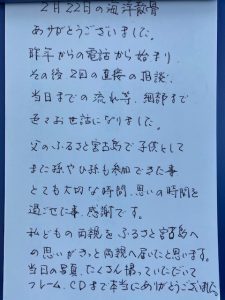 2月22日の海洋散骨
ありがとうございました。
昨年からの電話から始まり、
その後、2回の直接の相談、
当日までの流れ等、細部まで
色々お世話になりました。
父のふるさと宮古島で子供として
また孫やひ孫も参加できた事
とても大切な時間、思いの時間を
過ごせた事、感謝です。
私どもの両親をふるさと宮古島へ
の思いがきっと両親へ届いたと思います。
当日の写真、たくさん撮っていただいて
フレーム、CDまで本当にありがとうございました。